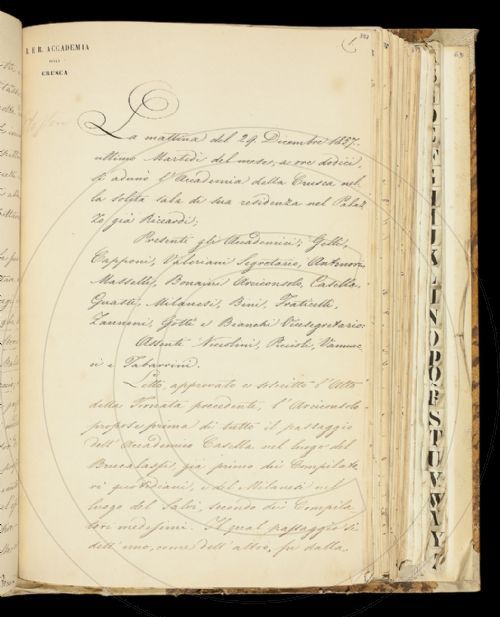 I. E R. ACCADEMIA
DELLA
CRUSCA
La mattina del 29 Dicembre 1857.
ultimo Martedì del mese, a ore dodici,
si adunò l'Accademia della Crusca nel
la solita sala di sua residenza nel Palaz
zo già Riccardi;
Presenti gli Accademici; Gelli,
Capponi, Valeriani Segretario, Antinori,
Masselli, Bonaini Arciconsolo, Casella,
Guasti, Milanesi, Bini, Fraticelli,
Zannoni, Gotti e Bianchi Vicesegretario:
Assenti Niccolini, Puccioli, Vannuc
ci e Tabarrini.
Letto, approvato e soscritto l'Atto
della Tornata precedente, l'Arciconsolo
propose prima di tutto il passaggio
dell'Accademico Casella nel luogo del
già primo dei Compilato
ri quotidiani, e del Milanesi nel
luogo del Salvi, secondo dei Compila
tori medesimi. Il qual passaggio sì
dell'uno, come dell'altro, fu dalla